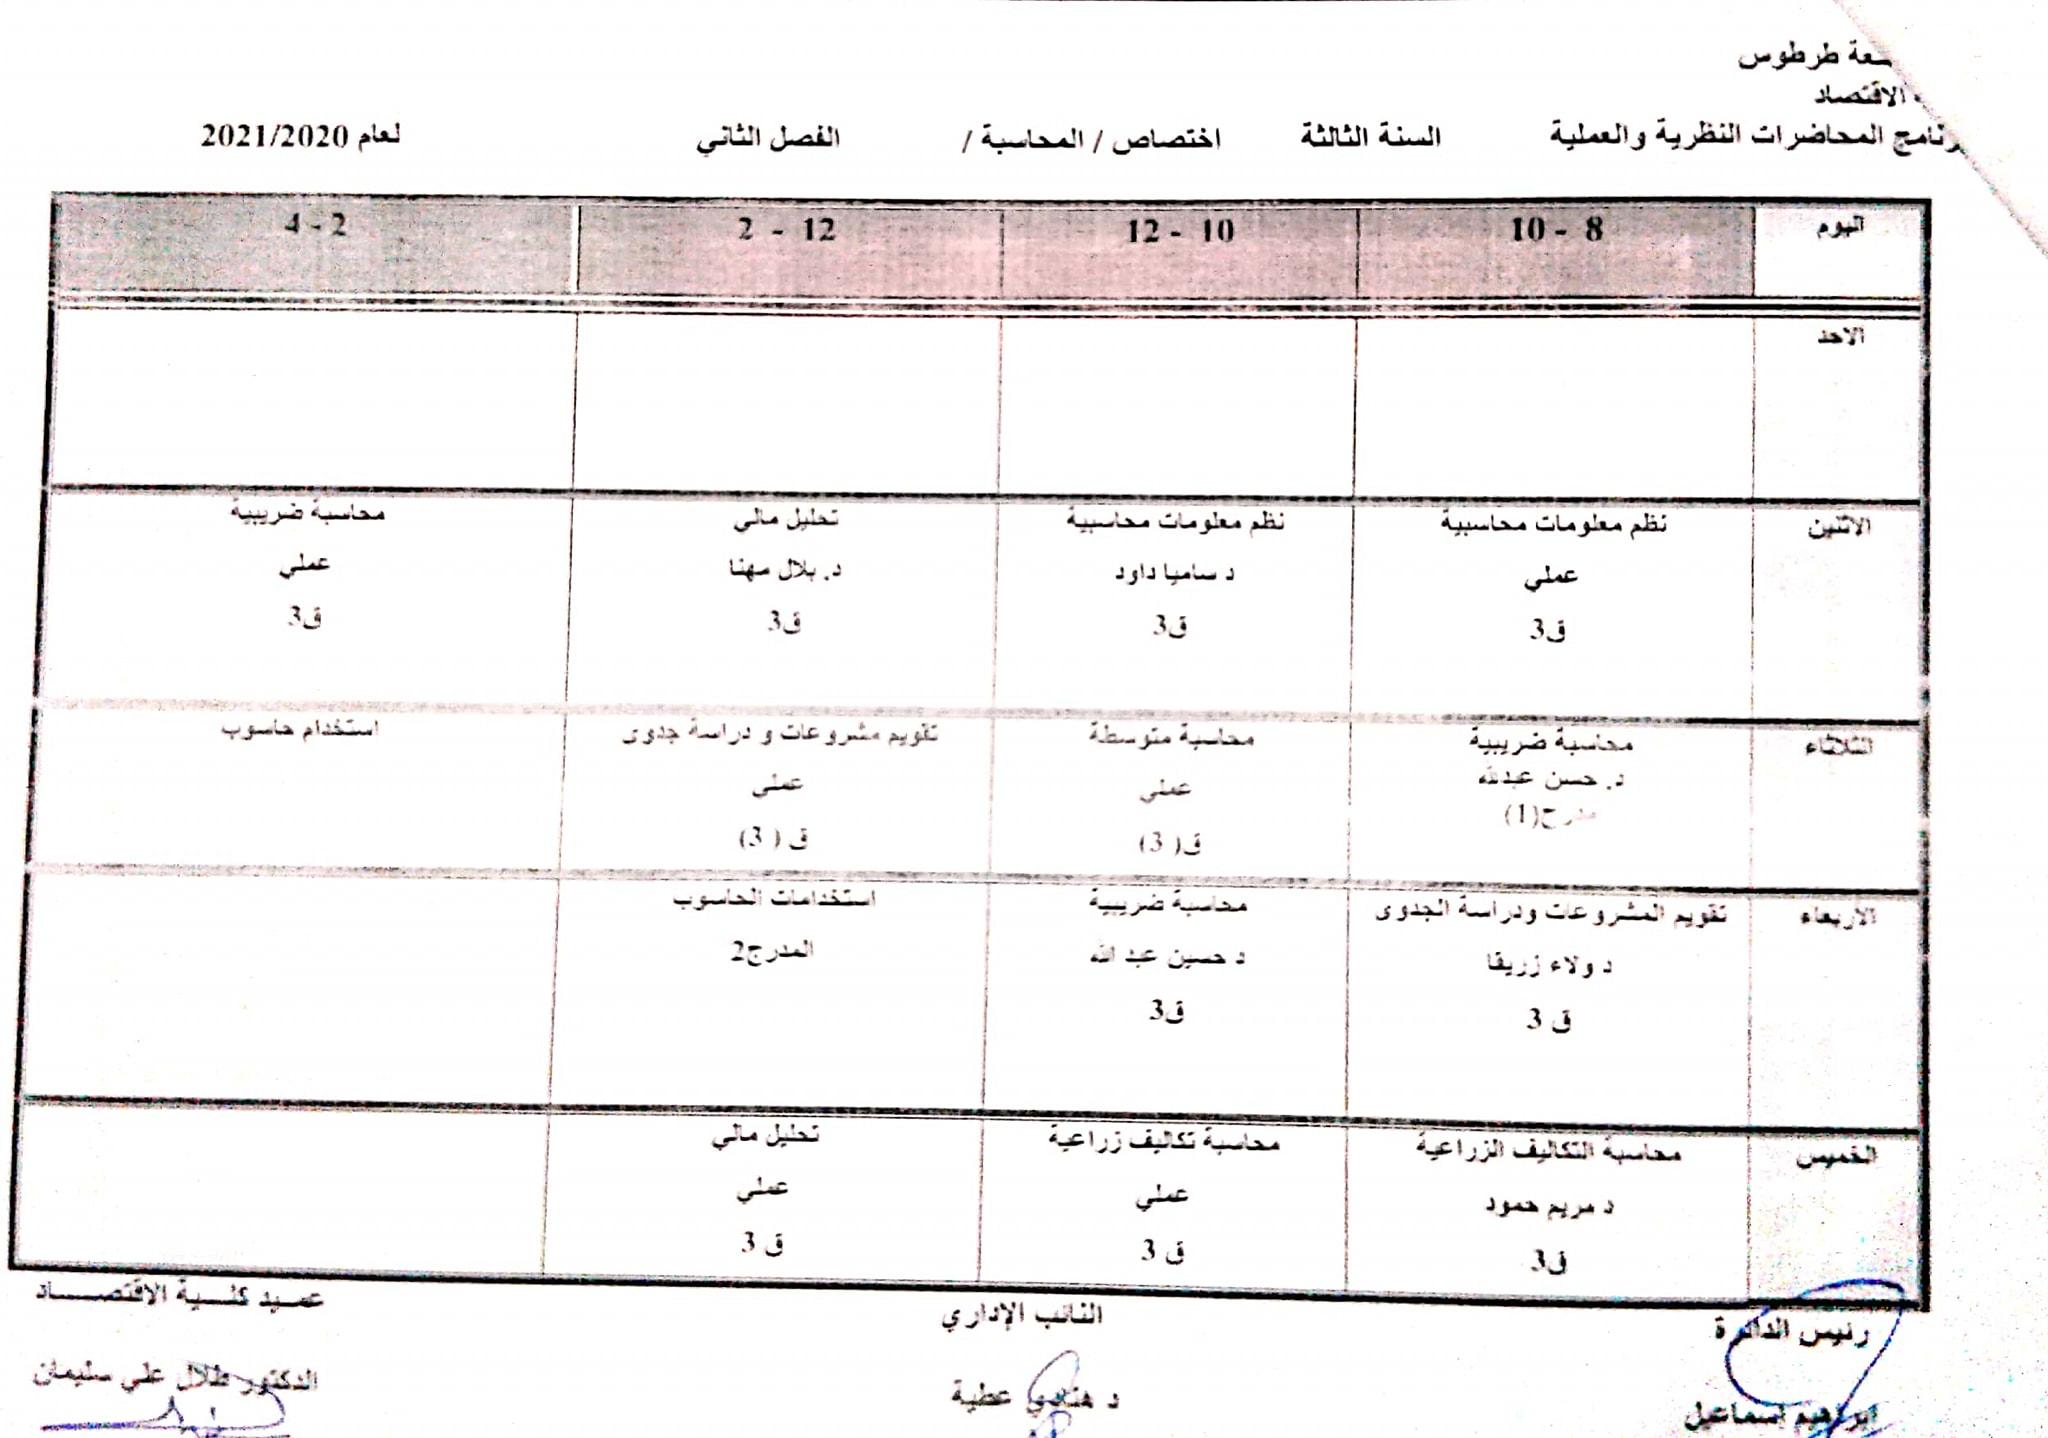 طرطوس
الاقتصاد
برنامج المحاضرات النظرية والعملية السنة الثالثة اختصاص / المحاسبة / الفصل الثاني لعام 2021/2020
اليوم 8 - 10 10 - 12 12 - 2 2 - 4
الاحد
الاثنين
نظم معلومات محاسبية
عملي
ق3
نظم معلومات محاسبية
د ساميا داود
ق3
تحليل مالي
د. بلال مهنا
ق3
محاسبة ضريبية
عملي
ق3
الثلاثاء
محاسبة ضريبية
د. حسن عبدلله
مدرج(1)
محاسبة متوسطة
عملي
ق( 3)
تقويم مشروعات و دراسة جدوى
عملي
ق ( 3)
استخدام حاسوب
الاربعاء
تقويم المشروعات ودراسة الجدوى
د ولاء زريقا
ق 3
محاسبة ضريبية
د حسين عبد الله
ق3
استخدامات الحاسوب
المدرج2
الخميس
محاسبة التكاليف الزراعية
د مريم حمود
ق3
محاسبة تكاليف زراعية
عملي
ق 3
تحليل مالي
عملي
ق 3
رئيس الدائرة النائب الإداري عميد كلية الاقتصاد
ابراهيم اسماعيل د هنادي عطية الدكتور طلال علي سليمان